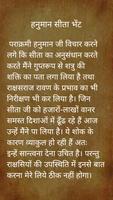 हनुमान सीता भेंट
पराक्रमी हनुमान जी विचार करने
लगे कि सीता का अनुसंधान करते
करते मैंने गुप्तरूप से शत्रु की
शक्ति का पता लगा लिया है तथा
राक्षसराज रावण के प्रभाव का भी
निरीक्षण भी कर लिया है। जिन
सीता जी को हजारों-लाखों वानर
समस्त दिशाओं में ढूँढ रहे हैं आज
उन्हें मैने पा लिया है। ये शोक के
कारण व्याकुल हो रही हैं अतः
इन्हें सान्त्वना देना उचित है। परन्तु
राक्षसियों की उपस्थिति में इनसे बात
करना मेरे लिये ठीक नहीं होगा।